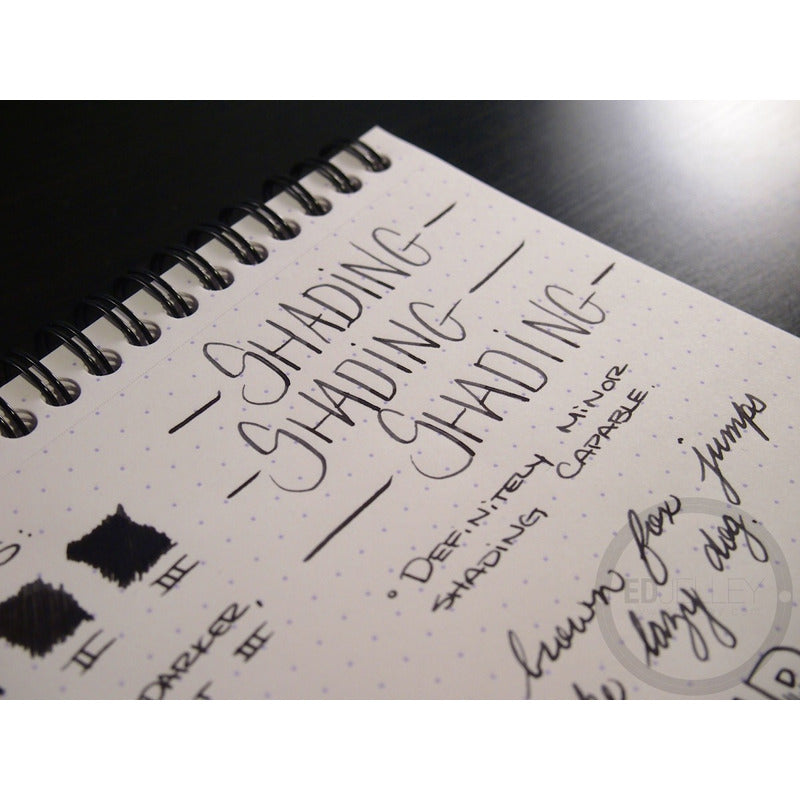 SHADING
SHADING
SHADING
° DEFINITELY MINOR
SHADING CAPABLE.
III
II
DARKER,
III
brown fox jumps
lazy dog.
D
EDJELLEY